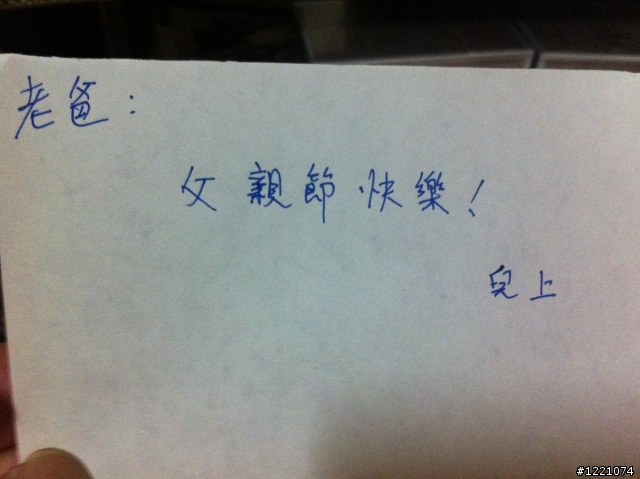 老爸：
父親節快樂！
兒上
#1221074